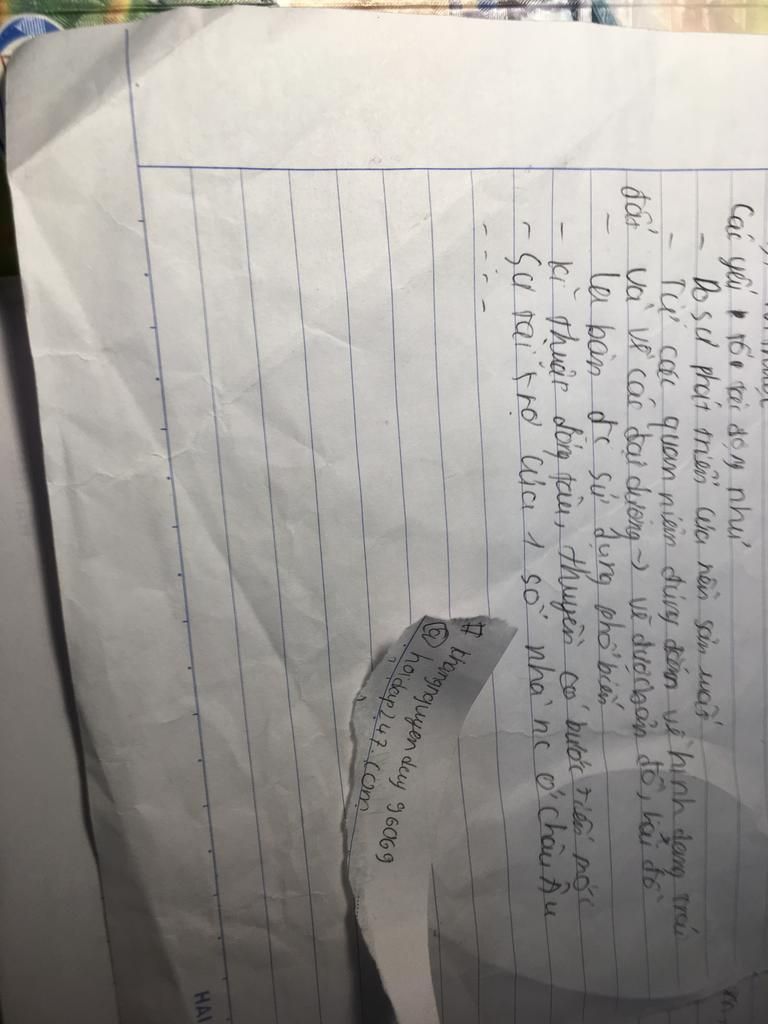 Các yếu tố tác động như
- Do sự phát triển của nền sản xuất
- Từ các quan niệm đúng đắn về hình dạng trái
đất và về các đại dương → vẽ được bản đồ, hải đồ
- La bàn đc sử dụng phổ biến
- Kĩ thuật đóng tàu, thuyền có bước tiến mới
- Sự tài trợ của 1 số nhà nc ở châu Âu
- - - -
# thangnguyenduy96069
@ hoidap247.com
HAI